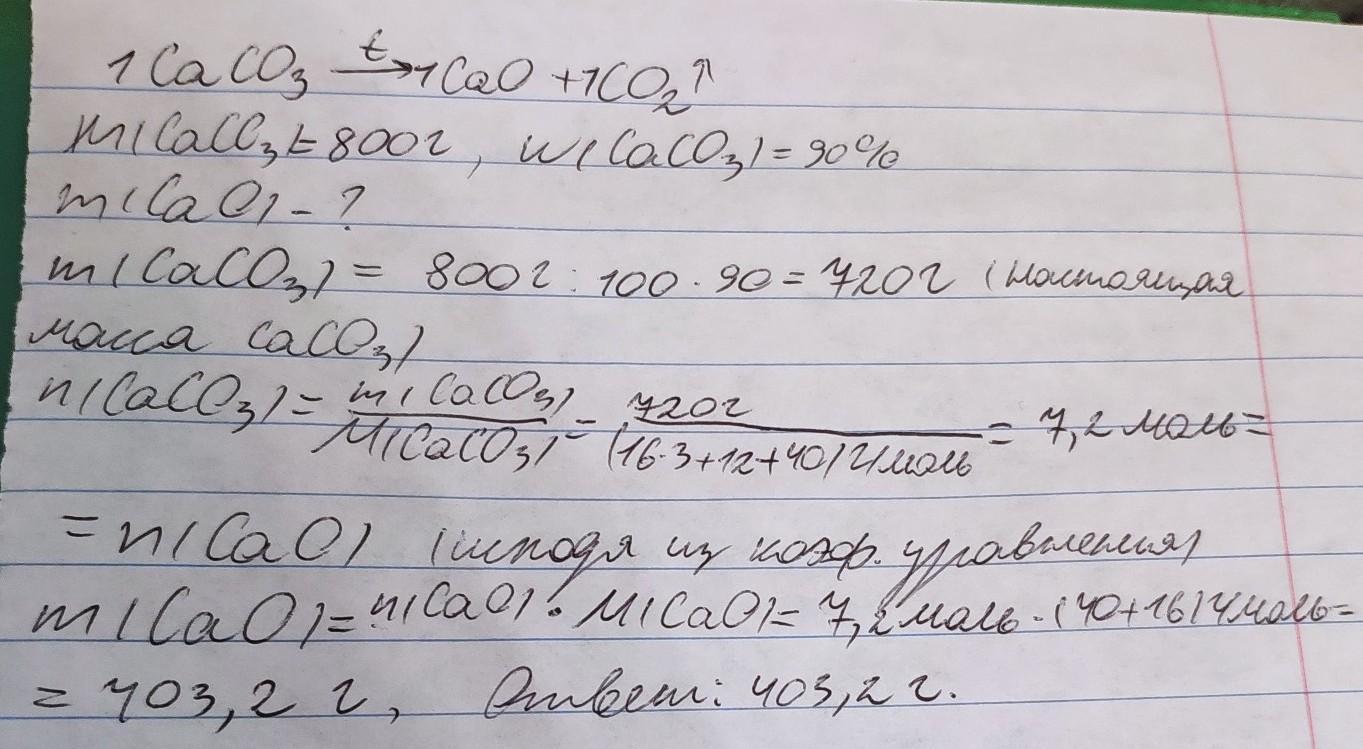 1CaCO₃ —t→ 1CaO + 1CO₂↑
m(CaCO₃) = 800г, w(CaCO₃) = 90%
m(CaO) - ?
m(CaCO₃) = 800г : 100 · 90 = 720г (настоящая
масса CaCO₃)
n(CaCO₃) = m(CaCO₃) / M(CaCO₃) = 720г / (16·3+12+40) г/моль = 7,2 моль =
= n(CaO) (исходя из коэф. уравнения)
m(CaO) = n(CaO) · M(CaO) = 7,2 моль · (40+16) г/моль =
= 403,2 г, Ответ: 403,2 г.